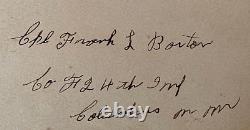 Cpl Frank L Borton
Co F 24th Inf
Columbus n m